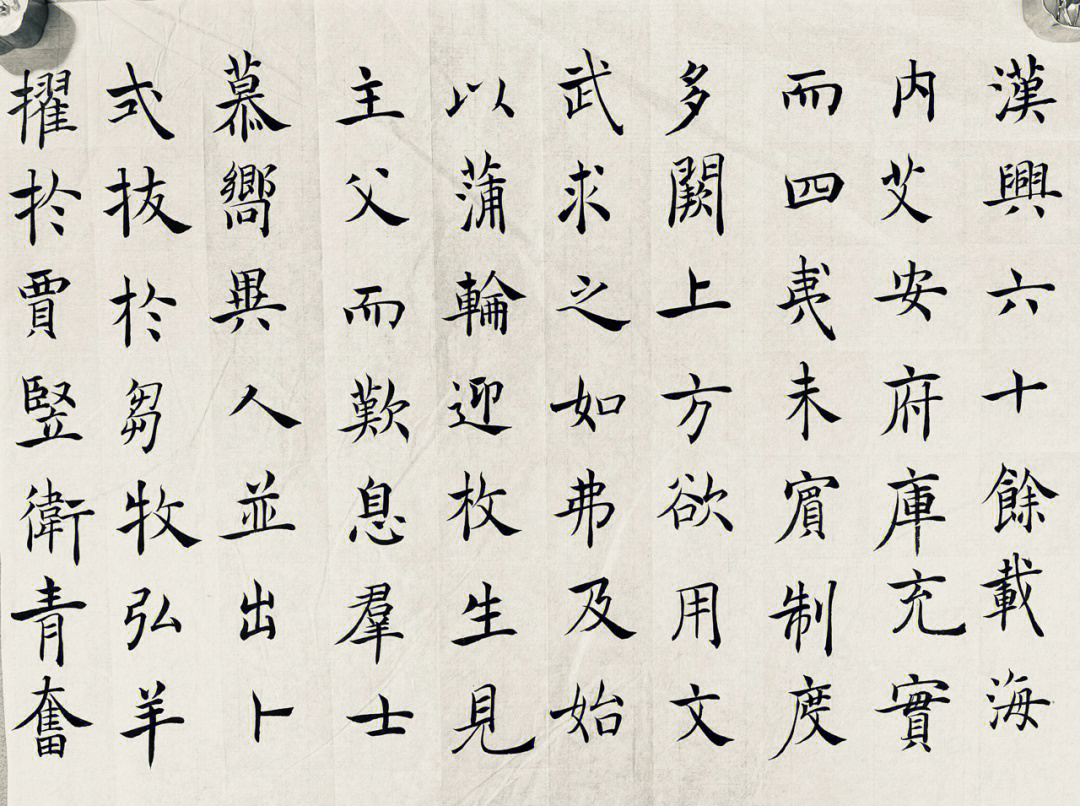 漢興六十餘載海
内艾安府庫充實
而四夷未賓制度
多闕上方欲用文
武求之如弗及始
以蒲輪迎枚生見
主父而歎息羣士
慕嚮異人並出卜
式拔於芻牧弘羊
擢於賈竪衛青奮